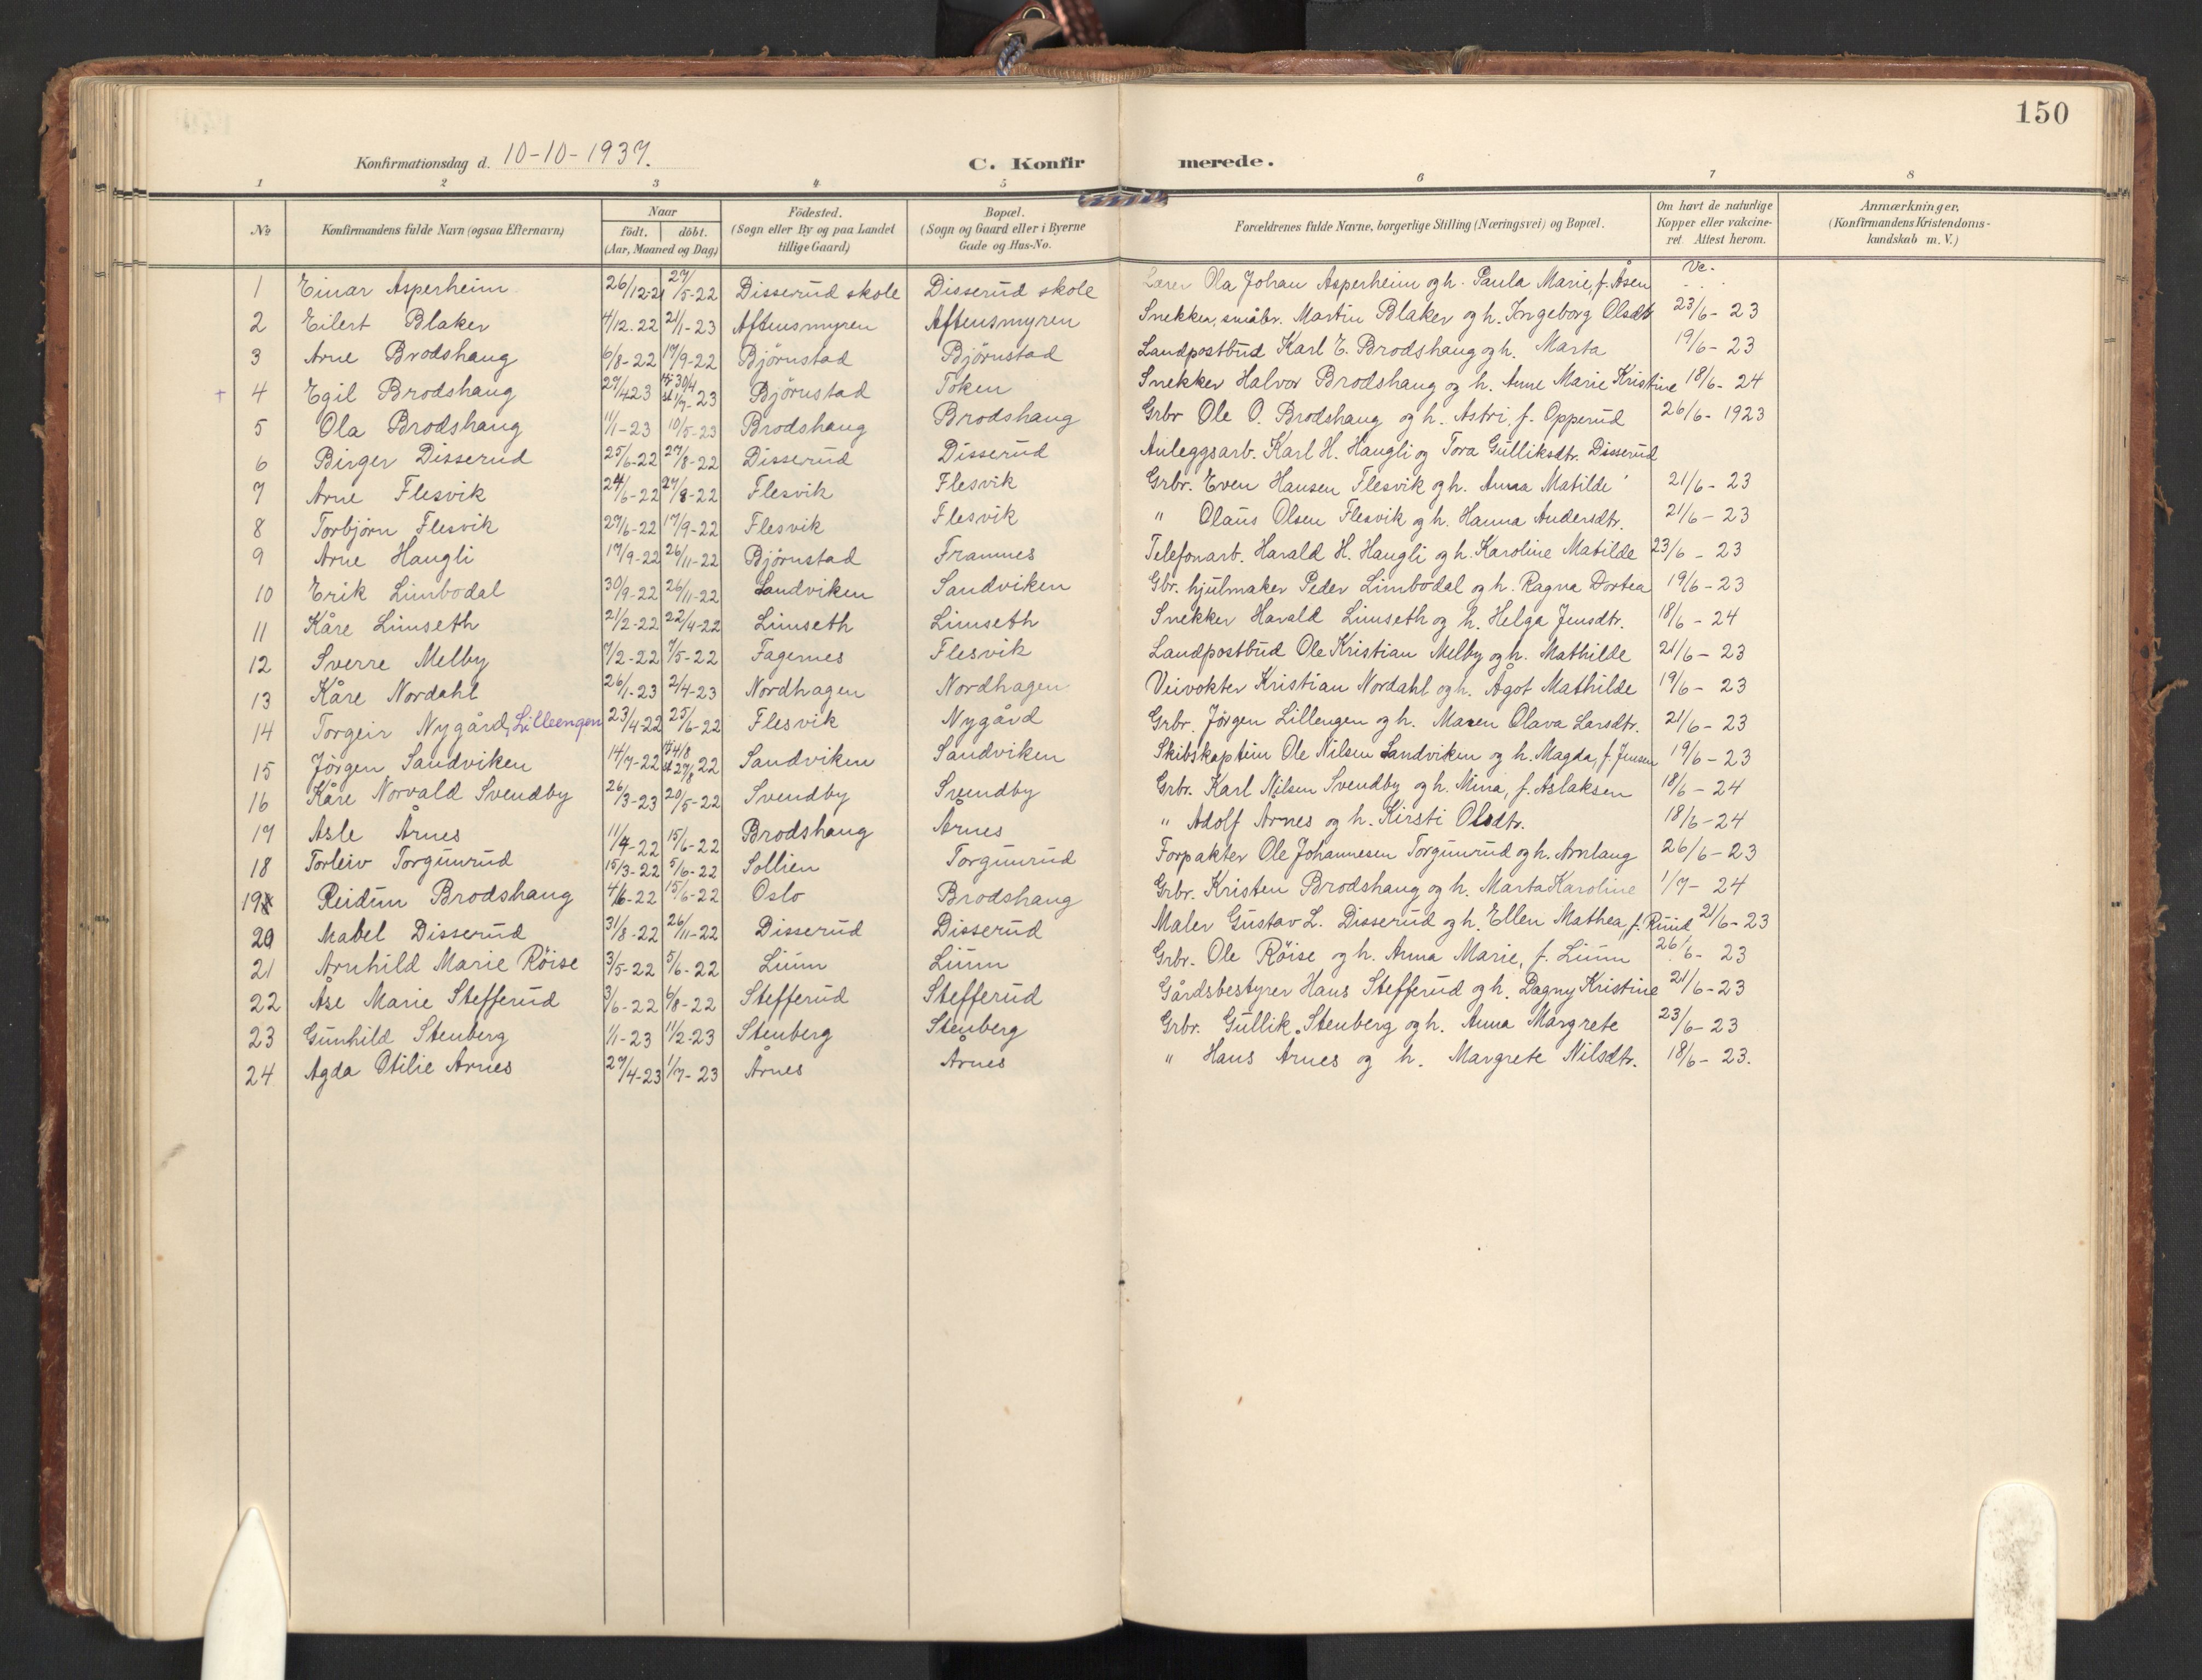 150
Konfirmationsdag d. 10-10-1937.
C. Konfirmerede.
1 2 3 4 5 6 7 8
№ Konfirmandens fulde Navn (ogsaa Efternavn) Naar födt. döbt. (Aar, Maaned og Dag) Födested. (Sogn eller By og paa Landet tillige Gaard) Bopæl. (Sogn og Gaard eller i Byerne Gade og Hus-No. Forældrenes fulde Navne, borgerlige Stilling (Næringsvei) og Bopæl. Om havt de naturlige Kopper eller vakcineret Attest herom. Anmærkninger. (Konfirmandens Kristendomskundskab m. V.)
1 Einar Asperheim 26/12-21 27/5-22 Disserud skole Disserud skole Lærer Ola Johan Asperheim og h. Paula Marie, f. Åsen Vc.
2 Eilert Blaker 4/12.22 21/1-23 Aftensmyren Aftensmyren Snekker, småbr. Martin Blaker og h. Ingeborg Olsdtr 23/6-23
3 Arne Brodshaug 6/8-22 17/9-22 Björnstad Björnstad Landpostbud Karl E. Brodshaug og h. Marta 19/6-23
+ 4 Egil Brodshaug 27/4 23 Hj 30/4 st 1/7-23 Björnstad Token Snekker Halvor Brodshaug og h. Anne Marie Kristine 18/6-24
5 Ola Brodshaug 11/1-23 10/5-23 Brodshaug Brodshaug Grbr Ole O. Brodshaug og h. Astri, f. Opperud 26/6-1923
6 Birger Disserud 25/6-22 27/8-22 Disserud Disserud Anleggsarb. Karl H. Haugli og Tora Gulliksdtr. Disserud
7 Arne Flesvik 24/6-22 27/8-22 Flesvik Flesvik Grbr. Even Hansen Flesvik og h. Anna Matilde 21/6-23
8 Torbjörn Flesvik 27/6-22 17/9-22 Flesvik Flesvik " Olaus Olsen Flesvik og h. Hanna Andersdtr. 21/6-23
9 Arne Haugli 17/9-22 26/11-22 Björnstad Framnes Telefonarb. Harald H. Haugli og h. Karoline Matilde 23/6-23
10 Erik Limbodal 30/9-22 26/11-22 Sandviken Sandviken Gbr. hjulmaker Peder Limbodal og h. Ragna Dortea 19/6-23
11 Kåre Limseth 21/2-22 22/4-22 Limseth Limseth Snekker Harald Limseth og h. Helga Jensdtr. 18/6-24
12 Sverre Melby 7/2-22 7/5-22 Fagernes Flesvik Landpostbud Ole Kristian Melby og h. Mathilde 21/6-23
13 Kåre Nordahl 26/1-23 2/4-23 Nordhagen Nordhagen Veivokter Kristian Nordahl og h. Ågot Mathilde 19/6-23
14 Torgeir Nygård, Lilleengen 23/4-22 25/6-22 Flesvik Nygård Grbr. Jörgen Lillengen og h. Maren Olava Larsdtr. 21/6-23
15 Jörgen Sandviken 14/7-22 Hj 4/8 st 27/8 22 Sandviken Sandviken Skibskaptein Ole Nilsen Sandviken og h. Magda, f. Jensen 19/6-23
16 Kåre Norvald Svendby 26/3-23 20/5-22 Svendby Svendby Grbr. Karl Nilsen Svendby og h. Mina, f. Aslaksen 18/6-24
17 Asle Årnes 11/4-22 15/6-22 Brodshaug Årnes " Adolf Årnes og h. Kirsti Olsdtr. 18/6-24
18 Torleiv Torgunrud 15/3-22 5/6-22 Sollien Torgunrud Forpakter Ole Johannesen Torgunrud og h. Arnlaug 26/6-23
19 Reidun Brodshaug 4/6-22 15/6-22 Oslo Brodshaug Grbr. Kristen Brodshaug og h. Marta Karoline 1/7-24
20 Mabel Disserud 31/8-22 26/11-22 Disserud Disserud Maler Gustav L. Disserud og h. Ellen Mathea, f. Ruud 21/6-23
21 Arnhild Marie Röise 3/5-22 5/6-22 Lium Lium Grbr. Ole Röise og h. Anna Marie, f. Lium 26/6-23
22 Åse Marie Stefferud 3/6-22 6/8-22 Stefferud Stefferud Gårdsbestyrer Hans Stefferud og h. Dagny Kristine 21/6-23
23 Gunhild Stenberg 1/1-23 11/2-23 Stenberg Stenberg Grbr. Gullik Stenberg og h. Anna Margrete 23/6-23
24 Agda Otilie Årnes 27/4-23 1/7-23 Årnes Årnes " Hans Årnes og h. Margrete Nilsdtr. 18/6-23.